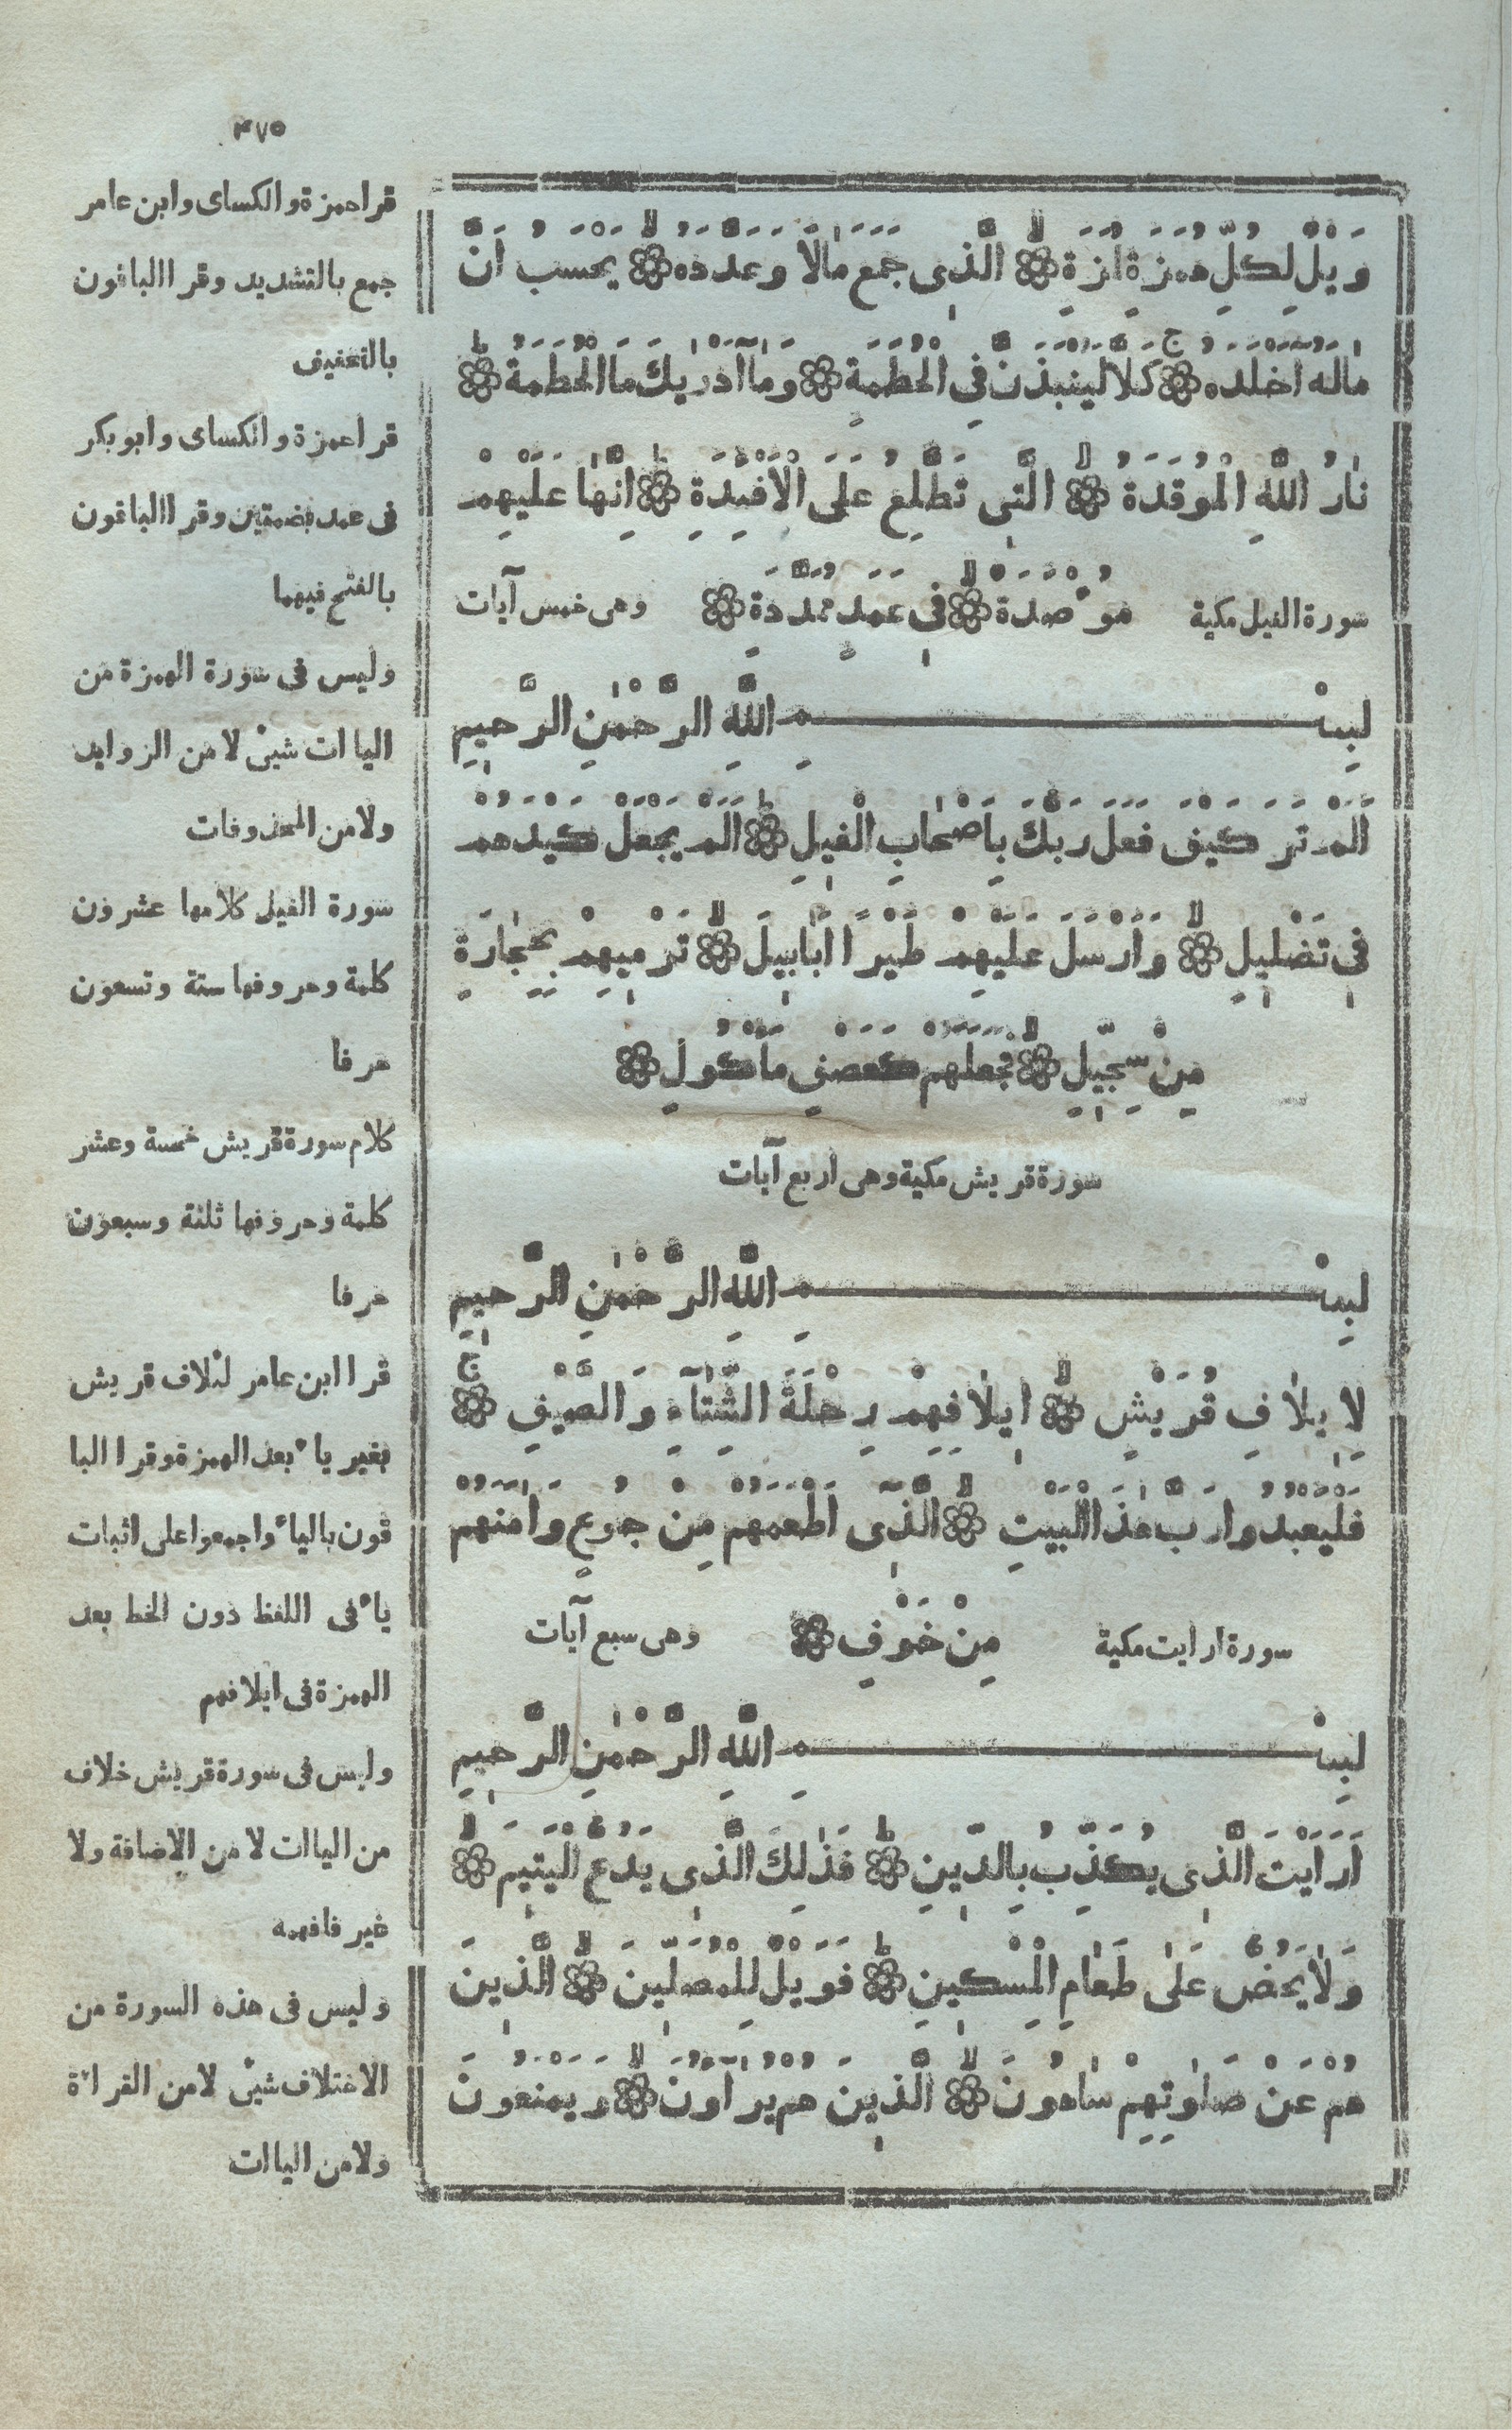 ٤٧٥
وَيْلٌ لِكُلِّ هُمَزَةٍ لُمَزَةٍ ۙ الَّذِى جَمَعَ مَالًا وَعَدَّدَهُ ۙ يَحْسَبُ اَنَّ
مَالَهُ اَخْلَدَهُ ۚ كَلَّا لَيُنْبَذَنَّ فِى الْحُطَمَةِ وَمَآ اَدْرٰيكَ مَا الْحُطَمَةُ ؕ
نَارُ اللّٰهِ الْمُوقَدَةُ ۙ الَّتِى تَطَّلِعُ عَلَى الْاَفْئِدَةِ ؕ اِنَّهَا عَلَيْهِمْ
سورة الفيل مكية مُؤْصَدَةٌ ۙ فِى عَمَدٍ مُمَدَّدَةٍ وهى خمس آيات
بِسْمِ اللّٰهِ الرَّحْمٰنِ الرَّحِيمِ
اَلَمْ تَرَ كَيْفَ فَعَلَ رَبُّكَ بِاَصْحَابِ الْفِيلِ ؕ اَلَمْ يَجْعَلْ كَيْدَهُمْ
فِى تَضْلِيلٍ ۙ وَاَرْسَلَ عَلَيْهِمْ طَيْرًا اَبَابِيلَ ۙ تَرْمِيهِمْ بِحِجَارَةٍ
مِنْ سِجِّيلٍ ۙ فَجَعَلَهُمْ كَعَصْفٍ مَاْكُولٍ
سورة قريش مكية وهى اربع آيات
بِسْمِ اللّٰهِ الرَّحْمٰنِ الرَّحِيمِ
لِاِيلَافِ قُرَيْشٍ ۙ اِيلَافِهِمْ رِحْلَةَ الشِّتَآءِ وَالصَّيْفِ ۚ
فَلْيَعْبُدُوا رَبَّ هٰذَا الْبَيْتِ ۙ الَّذِٓى اَطْعَمَهُمْ مِنْ جُوعٍ وَاٰمَنَهُمْ
سورة ارايت مكية مِنْ خَوْفٍ وهى سبع آيات
بِسْمِ اللّٰهِ الرَّحْمٰنِ الرَّحِيمِ
اَرَاَيْتَ الَّذِى يُكَذِّبُ بِالدِّينِ ؕ فَذٰلِكَ الَّذِى يَدُعُّ الْيَتِيمَ ۙ
وَلَا يَحُضُّ عَلٰى طَعَامِ الْمِسْكِينِ ؕ فَوَيْلٌ لِلْمُصَلِّينَ ۙ الَّذِينَ
هُمْ عَنْ صَلٰوتِهِمْ سَاهُونَ ۙ الَّذِينَ هُمْ يُرَآؤُنَ ۙ وَيَمْنَعُونَ
قرا حمزة والكساى وابن عامر
جمع بالتشديد وقرا الباقون
بالتخفيف
قرا حمزة والكساى وابو بكر
فى عمد بضمتين وقرا الباقون
بالفتح فيهما
وليس فى سورة الهمزة من
الياات شىْ لا من الزوايد
ولا من المحذوفات
سورة الفيل كلامها عشرون
كلمة وحروفها ستة وتسعون
حرفا
كلام سورة قريش خمسة وعشر
كلمة وحروفها ثلثة وسبعون
حرفا
قرا ابن عامر لئلاف قريش
بغير ياء بعد الهمزة وقرا البا
قون بالياء واجمعوا على اثبات
ياء فى اللفظ دون الخط بعد
الهمزة فى ايلافهم
وليس فى سورة قريش خلاف
من الياات لا من الاضافة ولا
غير فافهمه
وليس فى هذه السورة من
الاختلاف شىْ لا من القراءة
ولا من الياات